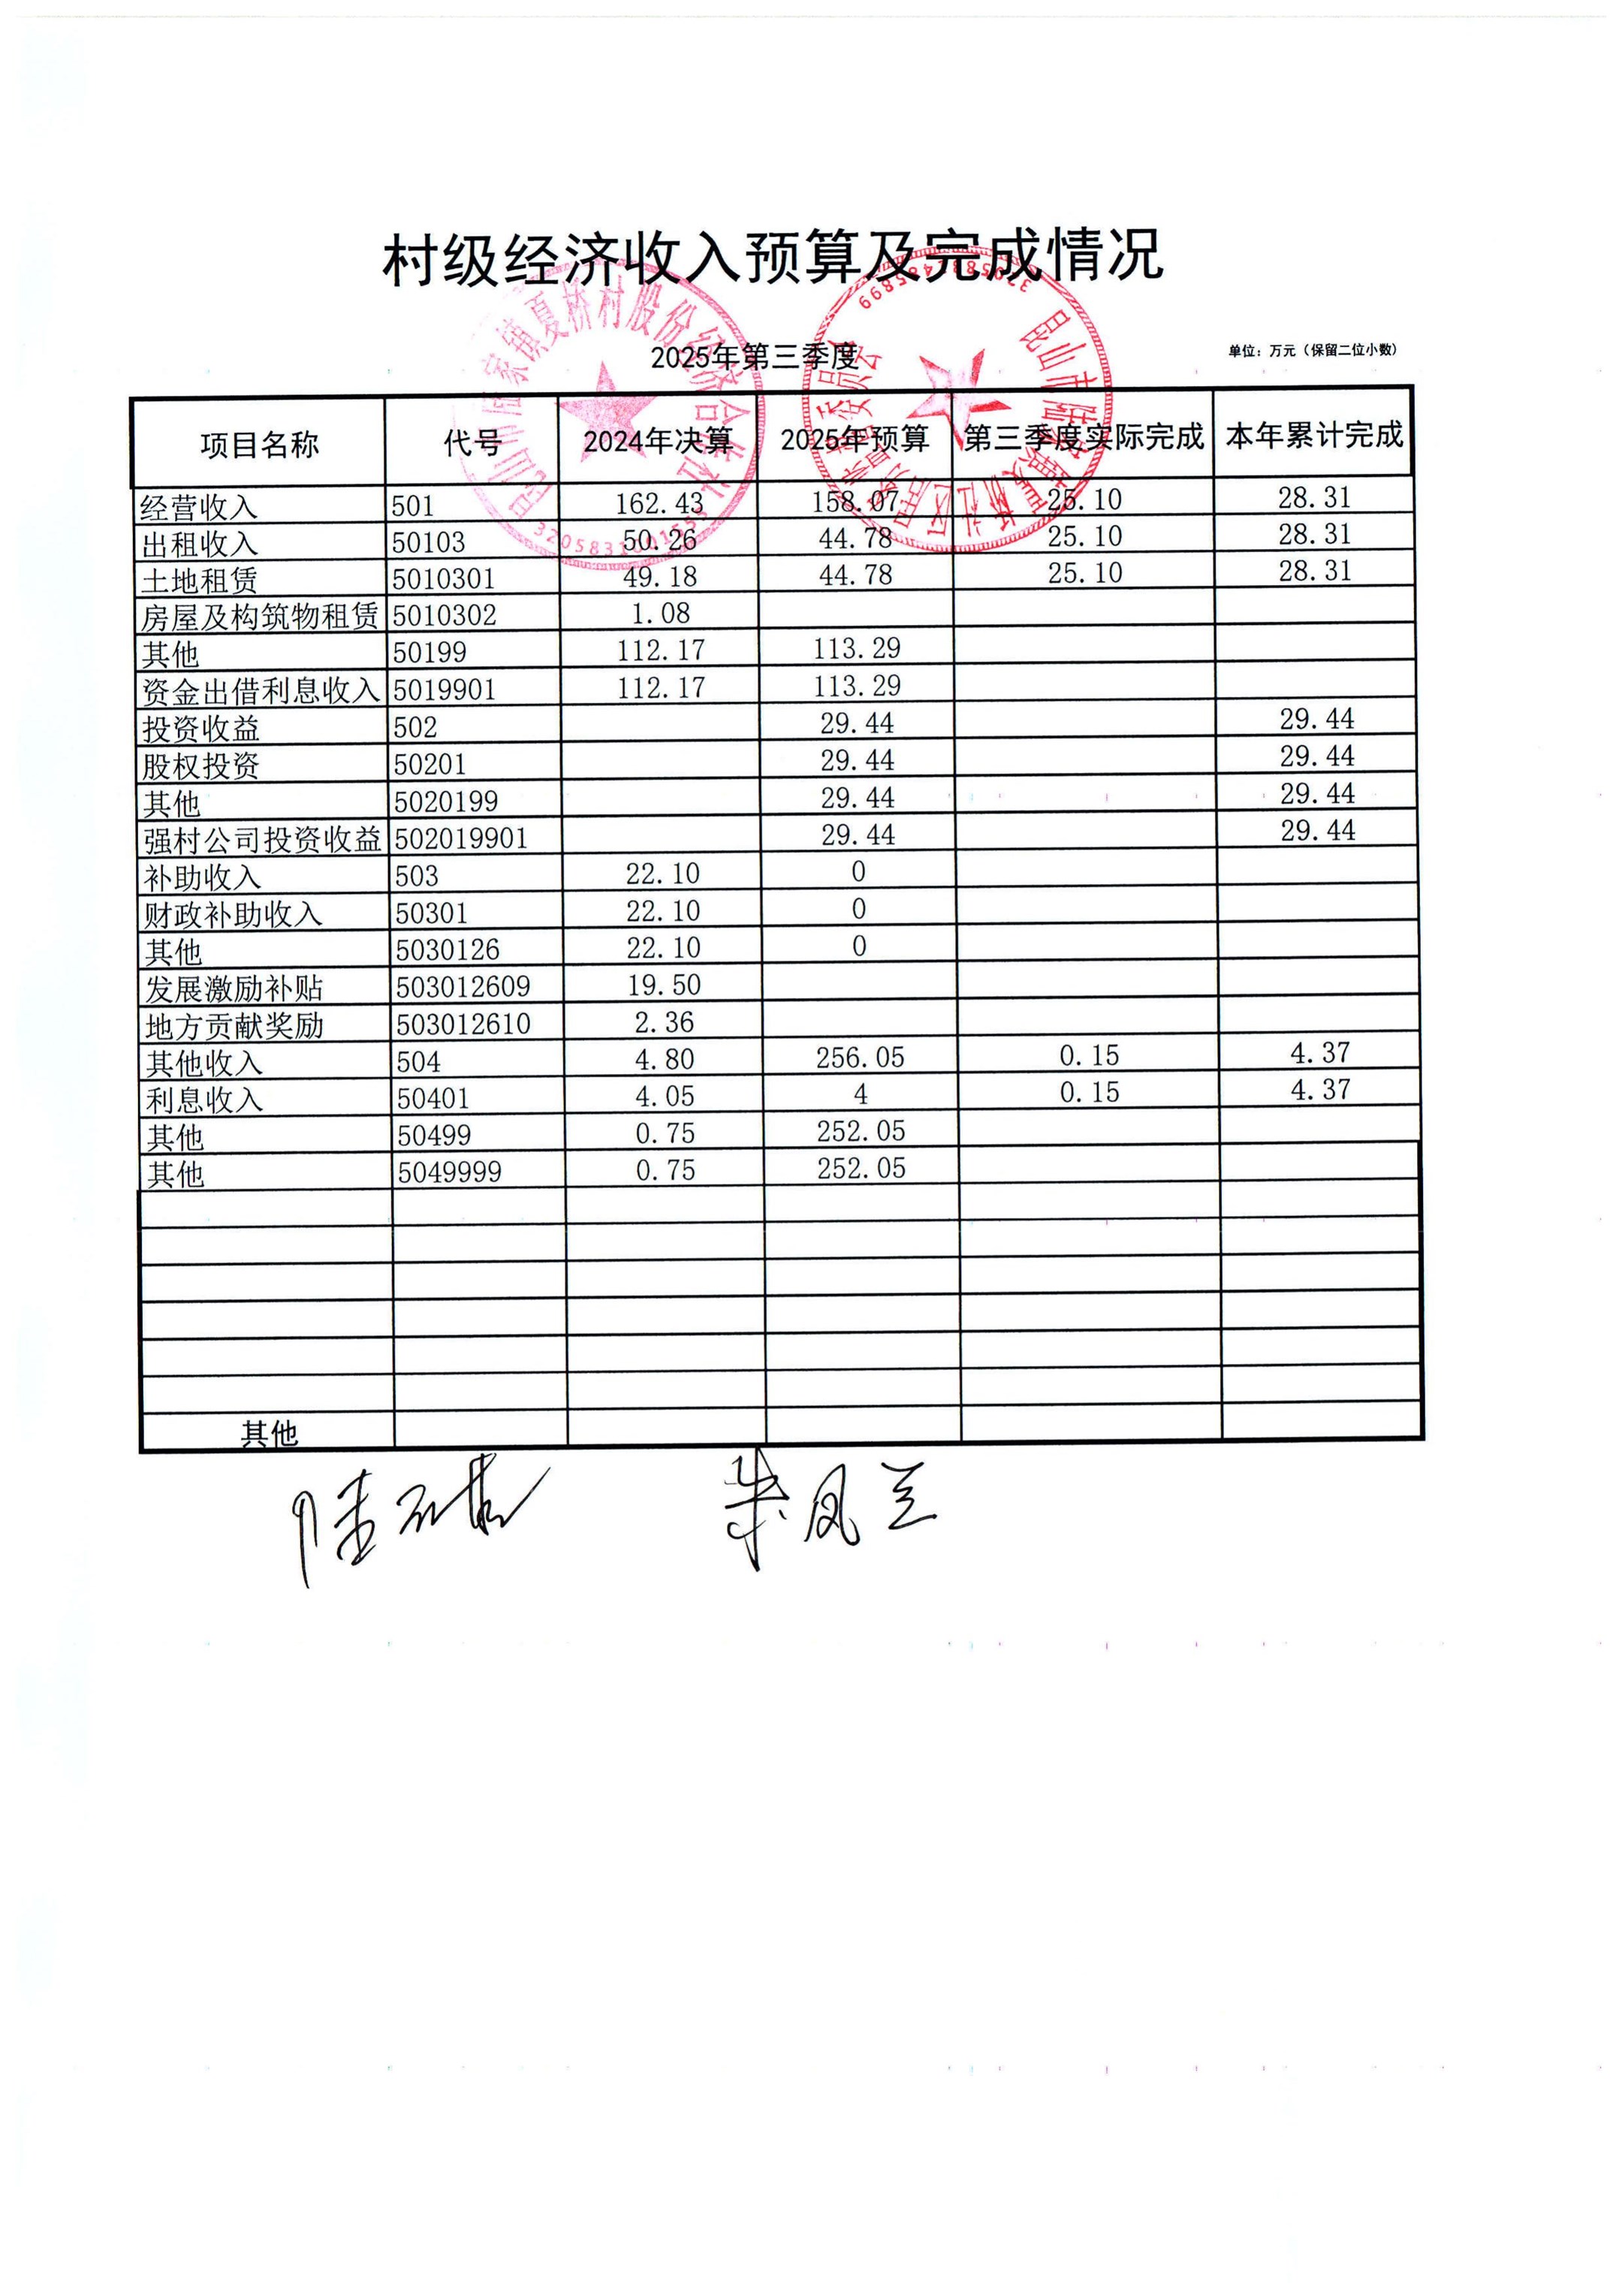 村级经济收入预算及完成情况
2025年第三季度
单位：万元（保留二位小数）
项目名称 代号 2024年决算 2025年预算 第三季度实际完成 本年累计完成
经营收入 501 162.43 158.07 25.10 28.31
出租收入 50103 50.26 44.78 25.10 28.31
土地租赁 5010301 49.18 44.78 25.10 28.31
房屋及构筑物租赁 5010302 1.08
其他 50199 112.17 113.29
资金出借利息收入 5019901 112.17 113.29
投资收益 502 29.44 29.44
股权投资 50201 29.44 29.44
其他 5020199 29.44 29.44
强村公司投资收益 502019901 29.44 29.44
补助收入 503 22.10 0
财政补助收入 50301 22.10 0
其他 5030126 22.10 0
发展激励补贴 503012609 19.50
地方贡献奖励 503012610 2.36
其他收入 504 4.80 256.05 0.15 4.37
利息收入 50401 4.05 4 0.15 4.37
其他 50499 0.75 252.05
其他 5049999 0.75 252.05
其他
昆山市陆家镇夏桥村股份经济合作社
昆山市陆家镇夏桥社区居务监督委员会
朱凤兰